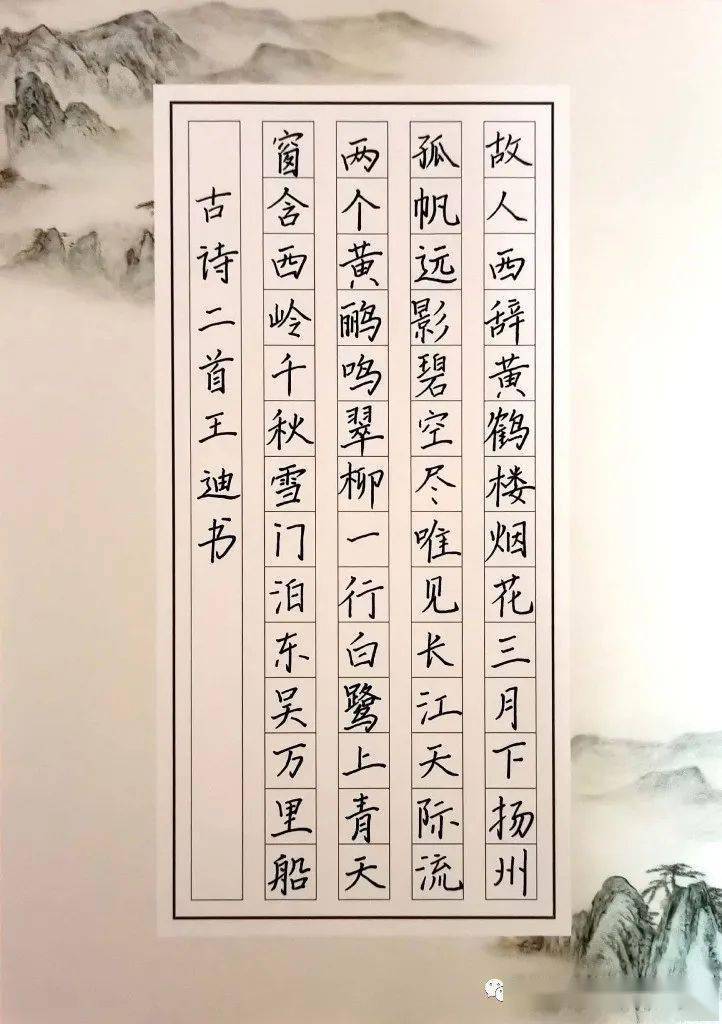 故人西辞黄鹤楼烟花三月下扬州
孤帆远影碧空尽唯见长江天际流
两个黄鹂鸣翠柳一行白鹭上青天
窗含西岭千秋雪门泊东吴万里船
古诗二首王迪书